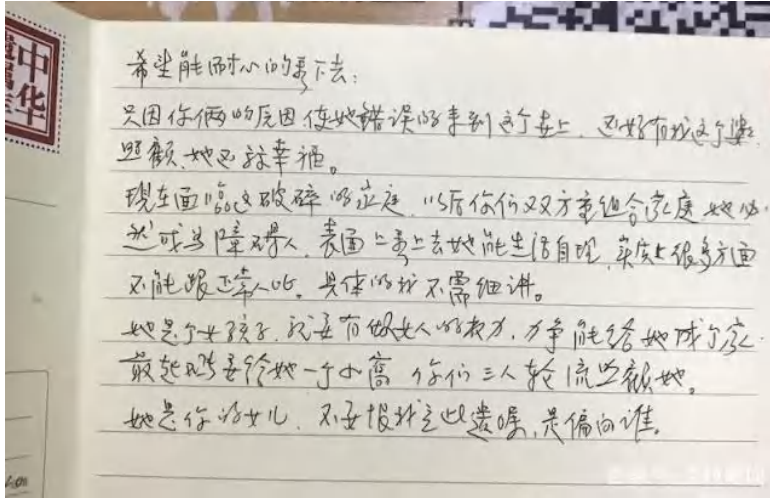 中华
希望能耐心的看下去:
只因你俩的原因使她错误的来到这个世上，还好有我这个婆
照顾，她还算幸福。
现在面临这破碎的家庭，以后你们双方重组合家庭她必
然成为障碍人，表面上看上去她能生活自理，实质上很多方面
不能跟正常人比。具体的我不需细讲。
她是个女孩子，就要有做女人的权力，力争能给她成个家
最起码要给她一个小窝，你们三人轮流照顾她。
她是你的女儿，不要恨我立此遗嘱，是偏向谁。